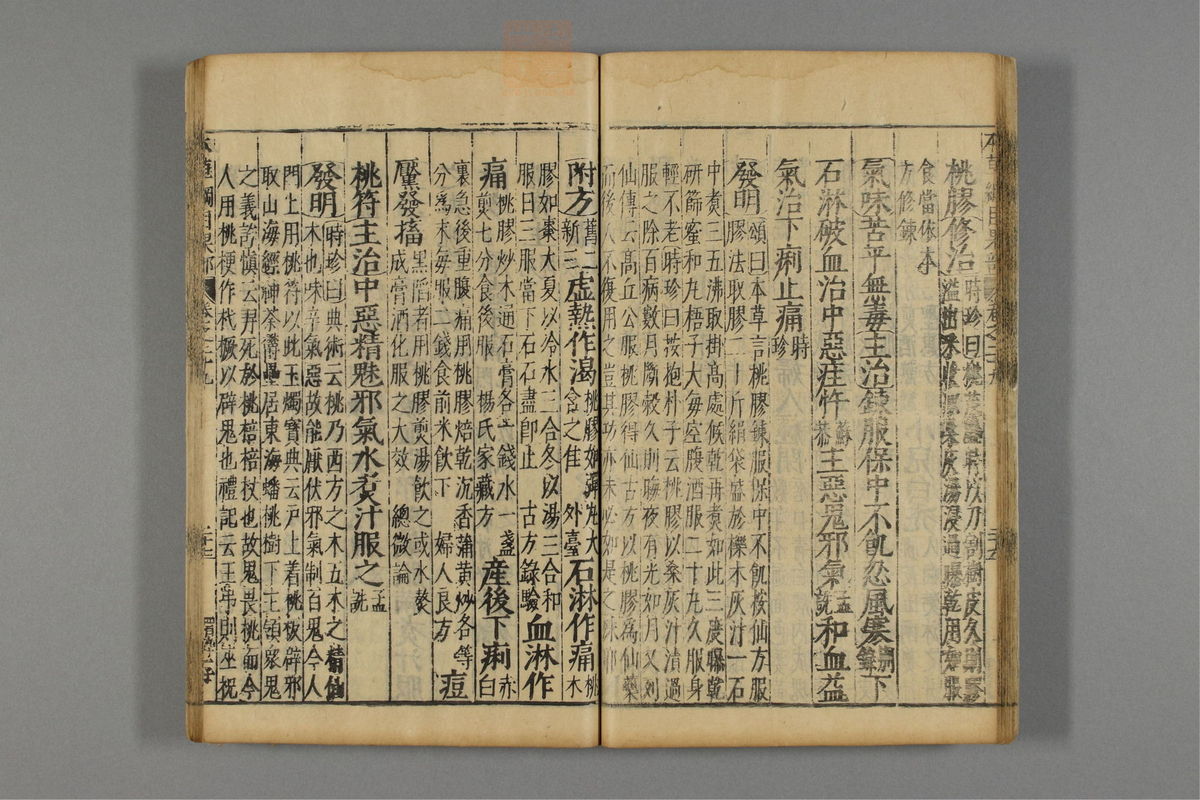 本草綱目果部 卷之二十九
桃膠修治
時珍曰桃茂盛時以刀割樹皮久則膠
溢出采收以桑灰湯浸過曝乾用如服
食當依本
方修鍊
氣味苦平無毒主治鍊服保中不飢忍風寒別錄下
石淋破血治中惡疰忤蘇恭主惡鬼邪氣孟詵和血益
氣治下痢止痛時珍
發明
頌曰本草言桃膠鍊服保中不飢按仙方服
膠法取膠二十斤絹袋盛於櫟木灰汁一石
中煮三五沸取掛高處候乾再煮如此三度曝乾
研篩蜜和丸梧子大每空腹酒服二十丸久服身
輕不老時珍曰按抱朴子云桃膠以桑灰汁漬過
服之除百病數月斷穀久則晦夜有光如月又列
仙傳云高丘公服桃膠得仙古方以桃膠為仙藥
而後人不復用之豈其功亦未必如是之殊邪
附方舊二新三虛熱作渴桃膠如彈丸大含之佳外臺石淋作痛桃木
膠如棗大夏以冷水三合冬以湯三合和
服日三服當下石石盡即止古方錄驗血淋作
痛桃膠炒木通石膏各一錢水一盞
煎七分食後服楊氏家藏方產後下痢赤白
裏急後重腹痛用桃膠焙乾沉香蒲黃炒各等
分為末每服二錢食前米飲下婦人良方痘
黶發搐黑黶者用桃膠煎湯飲之或水熬
成膏酒化服之大效總微論
桃符主治中惡精魅邪氣水煮汁服之孟詵
發明
時珍曰典術云桃乃西方之木五木之精仙
木也味辛氣惡故能厭伏邪氣制百鬼今人
門上用桃符以此玉燭寶典云戶上着桃板辟邪
取山海經神荼鬱壘居東海蟠桃樹下主領衆鬼
之義許慎云羿死於桃棓棓杖也故鬼畏桃而今
人用桃梗作杙橛以辟鬼也禮記云王弔則巫祝
本草綱目果部 卷之二十九